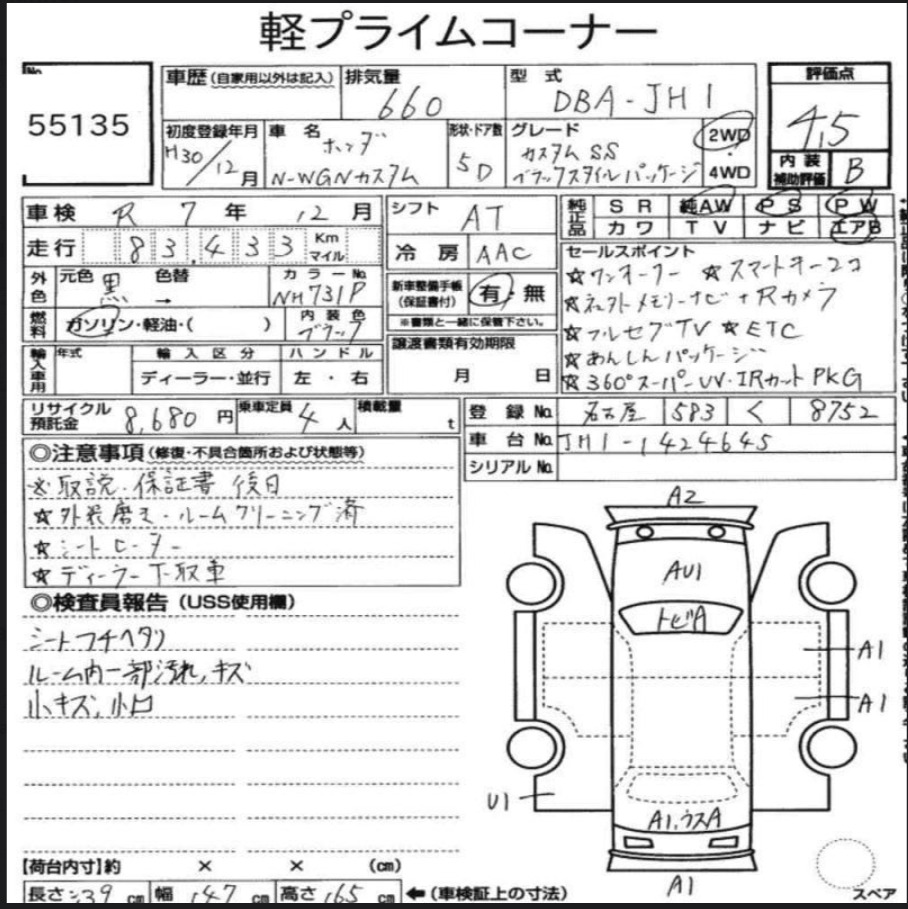 軽プライムコーナー
No.
55135
車歴(自家用以外は記入)
排気量
660
型式
DBA-JH1
評価点
4.5
初度登録年月
H30/12月
車名
ホンダ
N-WGNカスタム
形状・ドア数
5D
グレード
カスタムSS
ブラックスタイルパッケージ
2WD
・
4WD
内装
補助評価
B
車検 R 7年 12月
シフト AT
純正品
SR 純AW PS PW
カワ TV ナビ エアB
走行 83,433 Km マイル
冷房 AAC
セールスポイント
☆ワンオーナー ☆スマートキー2コ
☆ネットメモリーナビ+Rカメラ
☆フルセグTV ☆ETC
☆あんしんパッケージ
☆360°スーパーUV・IRカットPKG
外色
元色 黒 色替 →
カラーNo.
NH731P
新車整備手帳
(保証書付)
有・無
※書類と一緒に保管下さい。
燃料
ガソリン・軽油・( )
内装色
ブラック
譲渡書類有効期限
月 日
輸入車用
年式
輸入区分
ハンドル
ディーラー・並行
左・右
リサイクル
預託金
8,680円
乗車定員 4人
積載量 t
登録No. 名古屋 583 く 8752
車台No. JH1-1424645
シリアルNo.
◎注意事項(修復・不具合箇所および状態等)
※取説・保証書 後日
☆外装磨き・ルームクリーニング済
☆シートヒーター
☆ディーラー下取車
◎検査員報告(USS使用欄)
シートフチヘタリ
ルーム内一部汚れ,キズ
小キズ,小凹
A2
AU1
トビA
A1
A1
U1
A1,ウスA
A1
スペア
【荷台内寸】約 × × (cm)
長さ339cm 幅147cm 高さ165cm ←(車検証上の寸法)